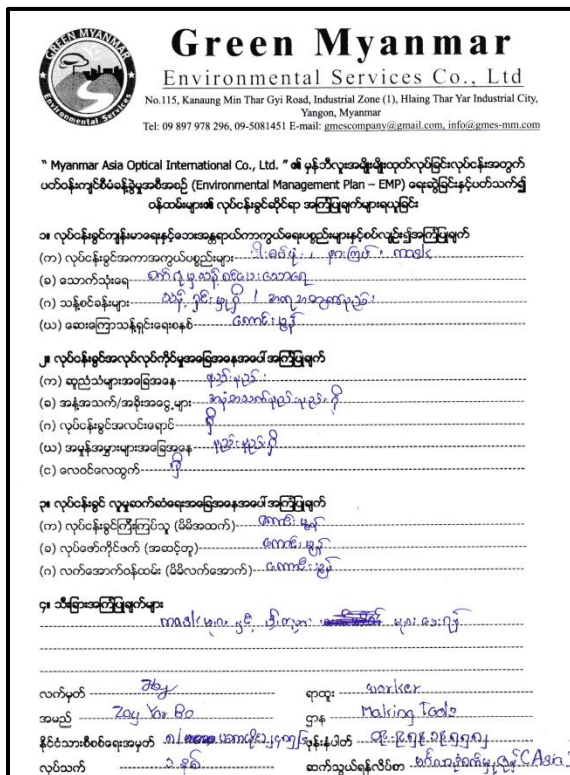 GREEN MYANMAR
Environmental Services
Green Myanmar
Environmental Services Co., Ltd
No.115, Kanaung Min Thar Gyi Road, Industrial Zone (1), Hlaing Thar Yar Industrial City,
Yangon, Myanmar
Tel: 09 897 978 296, 09-5081451 E-mail: gmescompany@gmail.com, info@gmes-mm.com
“ Myanmar Asia Optical International Co., Ltd. ” ၏ မှန်ဘီလူးအမျိုးမျိုးထုတ်လုပ်ခြင်းလုပ်ငန်းအတွက်
ပတ်ဝန်းကျင်စီမံခန့်ခွဲမှုအစီအစဉ် (Environmental Management Plan – EMP) ရေးဆွဲခြင်းနှင့်ပတ်သက်၍
ဝန်ထမ်းများ၏ လုပ်ငန်းခွင်ဆိုင်ရာ အကြံပြုချက်များရယူခြင်း
၁။ လုပ်ငန်းခွင်ကျန်းမာရေးနှင့်ဘေးအန္တရာယ်ကာကွယ်ရေးပစ္စည်းများနှင့်စပ်လျဉ်း၍အကြံပြုချက်
(က) လုပ်ငန်းခွင်အကာအကွယ်ပစ္စည်းများ နားကြပ် ၊ mask
(ခ) သောက်သုံးရေ
(ဂ) သန့်စင်ခန်းများ သန့်ရှင်းမှုရှိ
(ဃ) ဆေးကြောသန့်ရှင်းရေးစနစ် ကောင်းမွန်
၂။ လုပ်ငန်းခွင်အလုပ်လုပ်ကိုင်မှုအခြေအနေအပေါ်အကြံပြုချက်
(က) ဆူညံသံများအခြေအနေ နည်းနည်း
(ခ) အနံ့အသက်/အခိုးအငွေ့များ အနံ့အသက်နည်းနည်းရှိ
(ဂ) လုပ်ငန်းခွင်အလင်းရောင် ရှိ
(ဃ) အမှုန်အမွှားများအခြေအနေ နည်းနည်းရှိ
(င) လေဝင်လေထွက် ရှိ
၃။ လုပ်ငန်းခွင် လူမှုဆက်ဆံရေးအခြေအနေအပေါ်အကြံပြုချက်
(က) လုပ်ငန်းခွင်ကြီးကြပ်သူ (မိမိအထက်) ကောင်းမွန်
(ခ) လုပ်ဖော်ကိုင်ဖက် (အဆင့်တူ) ကောင်းမွန်
(ဂ) လက်အောက်ဝန်ထမ်း (မိမိလက်အောက်) ကောင်းမွန်
၄။ သီးခြားအကြံပြုချက်များ
mask များ နှင့် များ ပေးရန်
လက်မှတ် ရာထူး worker
အမည် Zay Yar Bo ဌာန Making Tools
နိုင်ငံသားစိစစ်ရေးအမှတ် ဖုန်းနံပါတ်
လုပ်သက် ၁ နှစ် ဆက်သွယ်ရန်လိပ်စာ